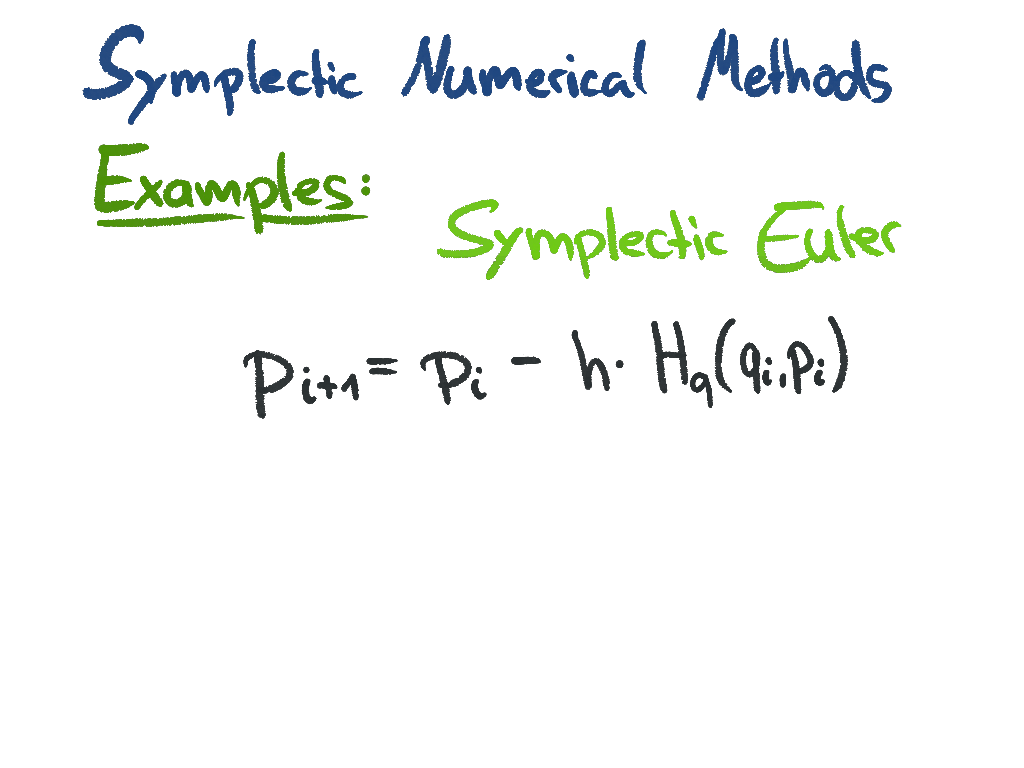 Symplectic Numerical Methods
Examples:
Symplectic Euler
p_{i+1} = p_i - h · H_q(q_i, p_i)